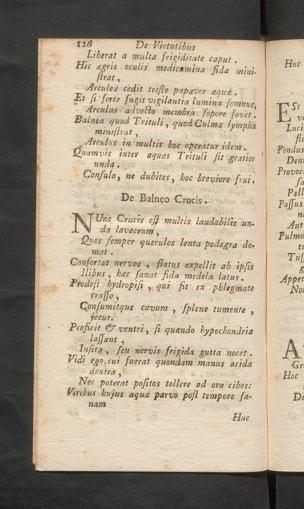 126 De Virtutibus
Liberat a multa frigiditate caput.
Hic ægris oculis medicamina fida mini-
strat,
Arculeæ cedit triste papaver aquæ.
Et si forte fugit vigilantia lumina somnus,
Arculus advecto membra sopore fovet.
Balnea quod Trituli, quod Culmæ lympha
ministrat,
Arculus in multis hoc operatur idem.
Quamvis inter aquas Trituli sit gratior
unda.
Consulo, ne dubites, hoc breviore frui.
De Balneo Crucis.
NUnc Crucis est multis laudabilis un-
da lavacrum,
Quos semper querulos lenta podagra do-
mat.
Confortat nervos, flatus expellit ab ipsis
Illibus, hæc sanat fida medela latus.
Prodest hydropisi, qui fit ex phlegmate
crasso,
Consumitque cavum, splene tumente,
jecur.
Proficit & ventri, si quando hypochondria
lassant,
Insita, seu nervis frigida gutta nocet.
Vidi ego, cui fuerat quondam manus arida
dextra,
Nec poterat positos tollere ad ora cibos:
Viribus hujus aquæ parvo post tempore sa-
nam
Huc
Huc
ESt
Luci
Pondus
Den
Provoc
Pell
Passus
Aut
Pulmo
Tuss
Appet
No
A
Gr
Hoc
D